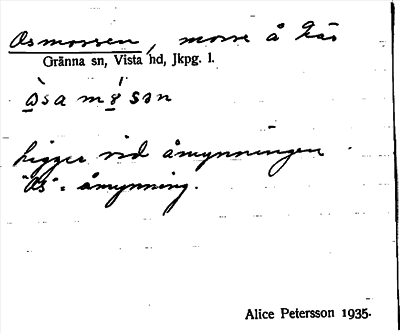 Osmossen, mosse å häs
Gränna sn, Vista hd, Jkpg. l.
ligger vid åmynningen
"Os" = åmynning.
Alice Petersson 1935.